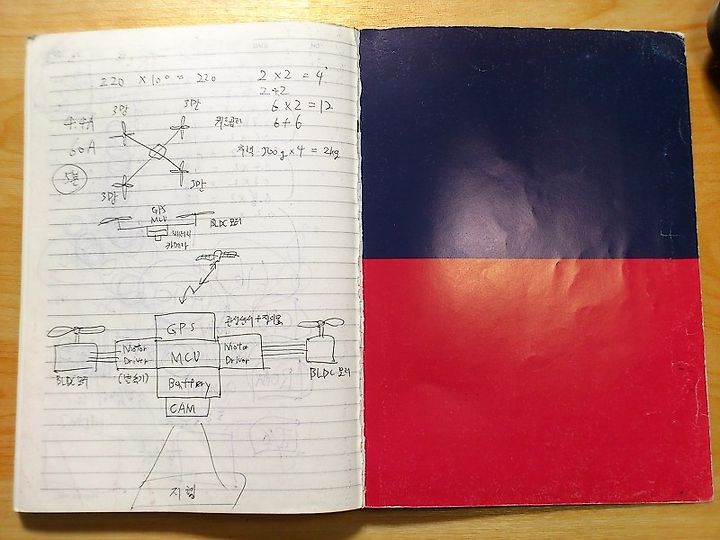 220 × 1000 220
2 × 2 = 4
2+2
6 × 2 = 12
6 + 6
3만
3만
쿼드콥터
60A
추력 500g × 4 = 2kg
5분
3만
3만
GPS
MCU
BLDC 모터
배터리
카메라
GPS
관성센서 + 지자기
Motor Driver
MCU
Motor Driver
BLDC 모터
(변속기)
Battery
BLDC 모터
CAM
지형